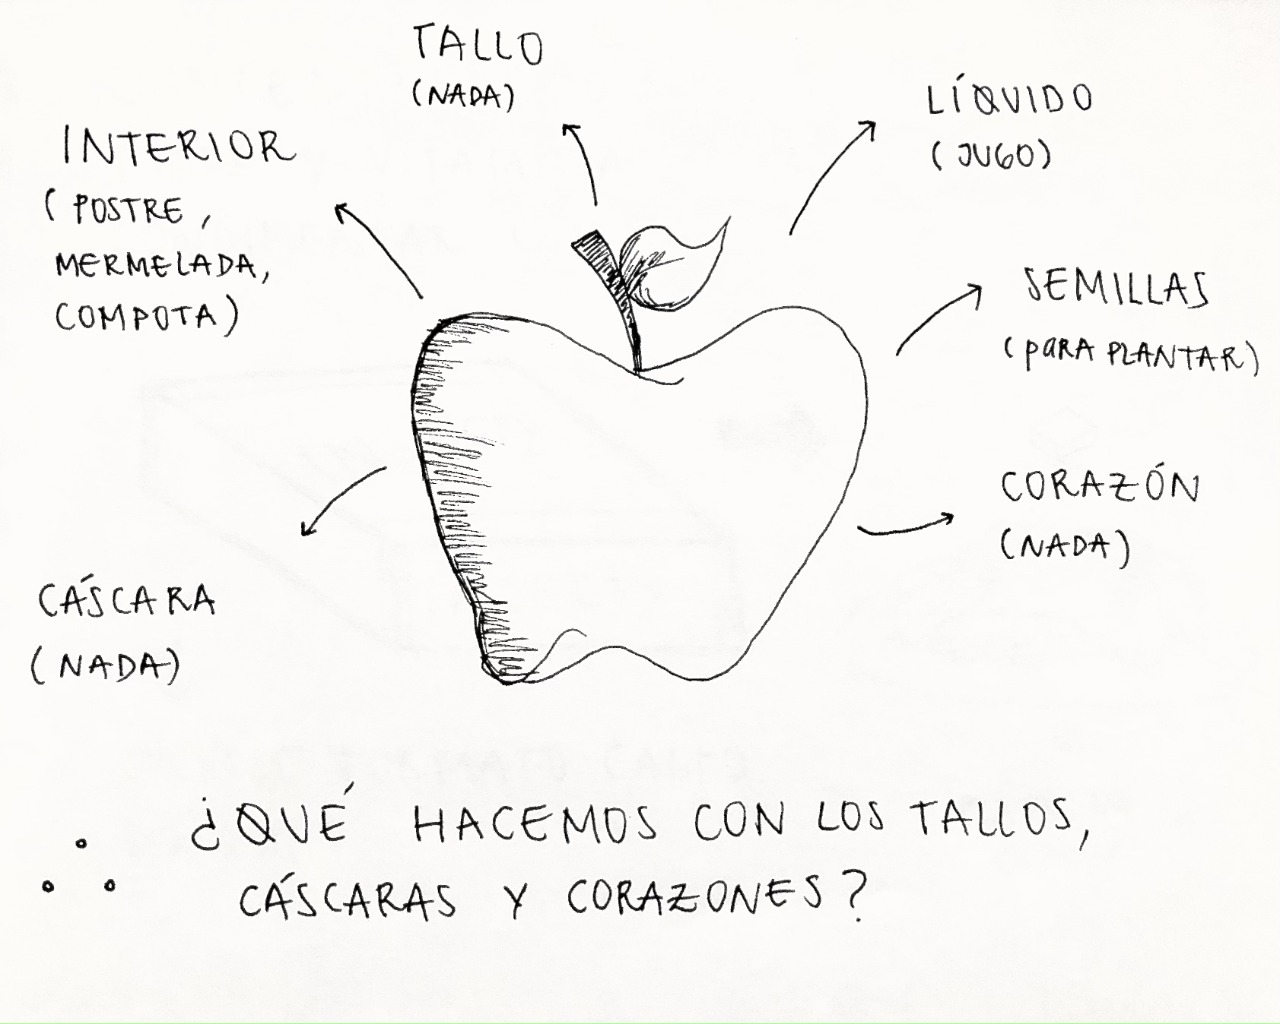 TALLO
(NADA)
LÍQUIDO
(JUGO)
INTERIOR
(POSTRE,
MERMELADA,
COMPOTA)
SEMILLAS
(PARA PLANTAR)
CORAZÓN
(NADA)
CÁSCARA
(NADA)
∴ ¿QUÉ HACEMOS CON LOS TALLOS,
CÁSCARAS Y CORAZONES?